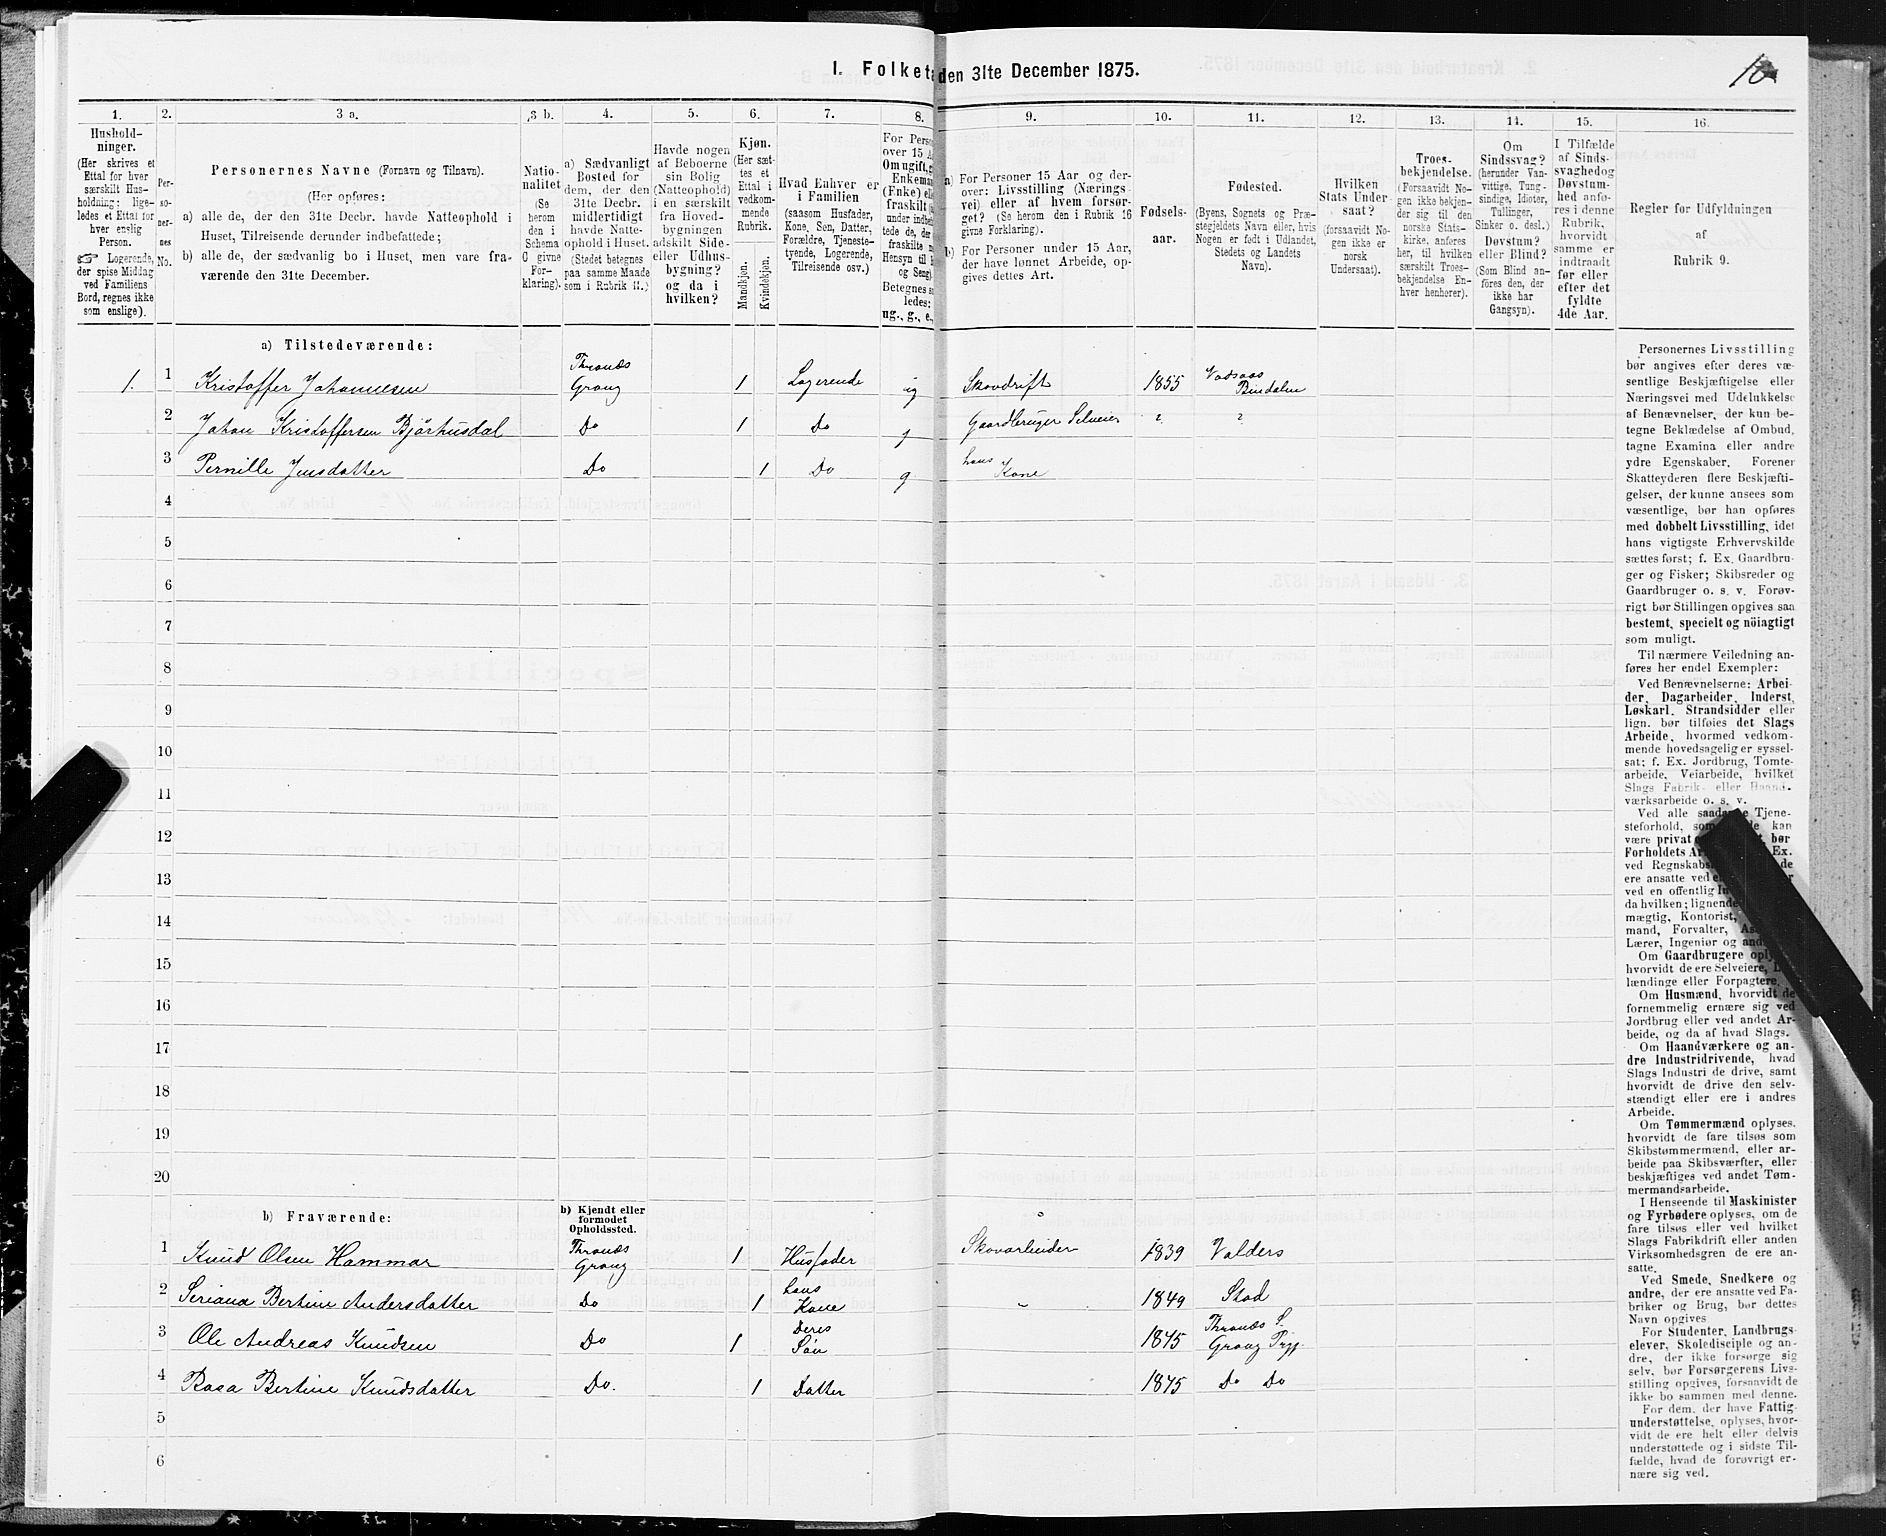 I. Folketæ
den 31te December 1875.
10
1.
2.
3 a.
3 b.
4.
5.
6.
7.
8.
9.
10.
11.
12.
13.
14.
15.
16.
Hushold-
ninger.
(Her skrives et
Ettal for hver
særskilt Hus-
holdning; lige-
ledes et Ettal for
hver enslig
Person.
☞ Logerende,
der spise Middag
ved Familiens
Bord, regnes ikke
som enslige).
Per-
so-
ner-
nes
No.
Personernes Navne (Fornavn og Tilnavn).
(Her opføres:
a) alle de, der den 31te Decbr. havde Natteophold i
Huset, Tilreisende derunder indbefattede;
b) alle de, der sædvanlig bo i Huset, men vare fra-
værende den 31te December.
Natio-
nalitet
(Se
herom
den i
Schema
C givne
For-
klaring).
a) Sædvanligt
Bosted for
dem, der den
31te Decbr.
midlertidigt
havde Natte-
ophold i Huset.
(Stedet betegnes
paa samme Maade
som i Rubrik 11.)
Havde nogen
af Beboerne
sin Bolig
(Natteophold)
i en særskilt
fra Hoved-
bygningen
adskilt Side-
eller Udhus-
bygning?
og da i
hvilken?
Kjøn.
(Her sæt-
tes et
Ettal i
vedkom-
mende
Rubrik.
Mandkjøn.
Kvindekjøn.
Hvad Enhver er
i Familien
(saasom Husfader,
Kone, Søn, Datter,
Forældre, Tjeneste-
tyende, Logerende,
Tilreisende osv.)
For Perso
over 15 A
Om ugift, g
Enkeman
(Enke) ell
fraskilt
under indbe
tede de, der
fraskilte
Hensyn til
og Seng).
Betegnes s
ledes:
ug., g., e.,
a) For Personer 15 Aar og der-
over: Livsstilling (Nærings-
vei) eller af hvem forsør-
get? (Se herom den i Rubrik 16
givne Forklaring).
b) For Personer under 15 Aar,
der have lønnet Arbeide, op-
gives dettes Art.
Fødsels-
aar.
Fødested.
(Byens, Sognets og Præ-
stegjeldets Navn eller, hvis
Nogen er født i Udlandet,
Stedets og Landets
Navn).
Hvilken
Stats Under-
saat?
(forsaavidt No-
gen ikke er
norsk
Undersaat).
Troes-
bekjendelse.
(Forsaavidt No-
gen ikke bekjen-
der sig til den
norske Stats-
kirke, anføres
her, til hvilken
særskilt Troes-
bekjendelse En-
hver henhører).
Om
Sindssvag?
(herunder Van-
vittige, Tung-
sindige, Idioter,
Tullinger,
Sinker o. desl.)
Døvstum?
eller Blind?
(Som Blind an-
føres den, der
ikke har
Gangsyn).
I Tilfælde
af Sinds-
svaghed og
Døvstum-
hed anfø-
res i denne
Rubrik,
hvorvidt
samme er
indtraadt
før eller
efter det
fyldte
4de Aar.
Regler for Udfyldningen
af
Rubrik 9.
a) Tilstedeværende:
1. 1 Kristoffer Johannesen Thronæs Grong 1 Logerende ug Skovdrift 1855 Vadsaas Bindalen
2 Johan Kristoffersen Bjørhusdal Do 1 Do g Gaardbruger Selveier ? ?
3 Pernille Jensdatter Do 1 Do g hans Kone
4
5
6
7
8
9
10
11
12
13
14
15
16
17
18
19
20
b) Fraværende:
b) Kjendt eller
formodet
Opholdssted.
1 Knud Olsen Hammar Thronæs Grong 1 Husfader Skovarbeider 1839 Valders
2 Seriana Bertine Andersdatter Do 1 hans Kone 1849 Stod
3 Ole Andreas Knudsen Do 1 Deres Søn 1875 Thronæs S. Grong Prgj.
4 Rasa Bertine Knudsdatter Do. 1 Datter 1875 Do Do
5
6
Personernes Livsstilling
bør angives efter deres væ-
sentlige Beskjæftigelse eller
Næringsvei med Udelukkelse
af Benævnelser, der kun be-
tegne Beklædelse af Ombud,
tagne Examina eller andre
ydre Egenskaber. Forener
Skatteyderen flere Beskjæfti-
gelser, der kunne ansees som
væsentlige, bør han opføres
med dobbelt Livsstilling, idet
hans vigtigste Erhvervskilde
sættes først; f. Ex. Gaardbru-
ger og Fisker; Skibsreder og
Gaardbruger o. s. v. Forøv-
rigt bør Stillingen opgives saa
bestemt, specielt og nöiagtigt
som muligt.
Til nærmere Veiledning an-
føres her endel Exempler:
Ved Benævnelserne: Arbei-
der, Dagarbeider, Inderst,
Løskarl, Strandsidder eller
lign. bør tilføies det Slags
Arbeide, hvormed vedkom-
mende hovedsagelig er syssel-
sat; f. Ex. Jordbrug, Tomte-
arbeide, Veiarbeide, hvilket
Slags Fabrik- eller Haand-
værksarbeide o. s. v.
Ved alle saadanne Tjene-
steforhold, som kan
være privat bør
Forholdets Ar Ex.
ved Regnskabs de
ere ansatte ved
ved en offentlig In
da hvilken; lignende
mægtig, Kontorist,
mand, Forvalter, As
Lærer, Ingeniør og and
Om Gaardbrugere oply
hvorvidt de ere Selveiere, L
lændinge eller Forpagtere.
Om Husmænd, hvorvidt de
fornemmelig ernære sig ved
Jordbrug eller ved andet Ar-
beide, og da af hvad Slags.
Om Haandværkere og an-
dre Industridrivende, hvad
Slags Industri de drive, samt
hvorvidt de drive den selv-
stændigt eller ere i andres
Arbeide.
Om Tømmermænd oplyses,
hvorvidt de fare tilsøs som
Skibstømmermænd, eller ar-
beide paa Skibsværfter, eller
beskjæftiges ved andet Tøm-
mermandsarbeide.
I Henseende til Maskinister
og Fyrbødere oplyses, om de
fare tilsøs eller ved hvilket
Slags Fabrikdrift eller anden
Virksomhedsgren de ere an-
satte.
Ved Smede, Snedkere og
andre, der ere ansatte ved Fa-
briker og Brug, bør dettes
Navn opgives
For Studenter, Landbrugs-
elever, Skoledisciple og an-
dre, der ikke forsørge sig
selv, bør Forsørgerens Livs-
stilling opgives, forsaavidt de
ikke bo sammen med denne.
For dem, der have Fattig-
understøttelse, oplyses, hvor-
vidt de ere helt eller delvis
understøttede og i sidste Til-
fælde, hvad de forøvrigt er-
nære sig ved.